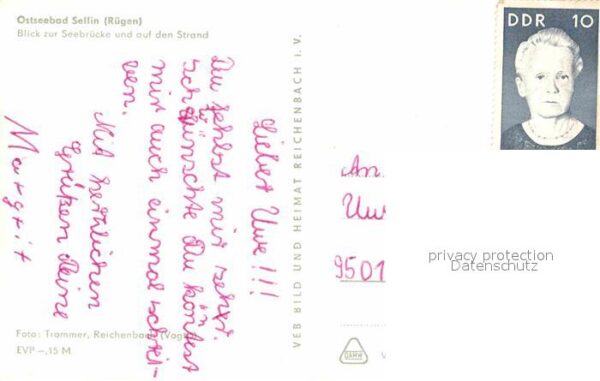 Ostseebad Sellin (Rügen)
Blick zur Seebrücke und auf den Strand
Lieber Uwe!!!
Du fehlst mir sehr.
Ich wünschte Du könntest
mir auch einmal schrei-
ben.
Mit herzlichen
Grüßen Deine
Margrit
Foto: Trommer, Reichenbach (Vogtl
EVP -,15 M
VEB BILD UND HEIMAT REICHENBACH I. V.
DDR 10
An
Uwe
9501
privacy protection
Datenschutz
V